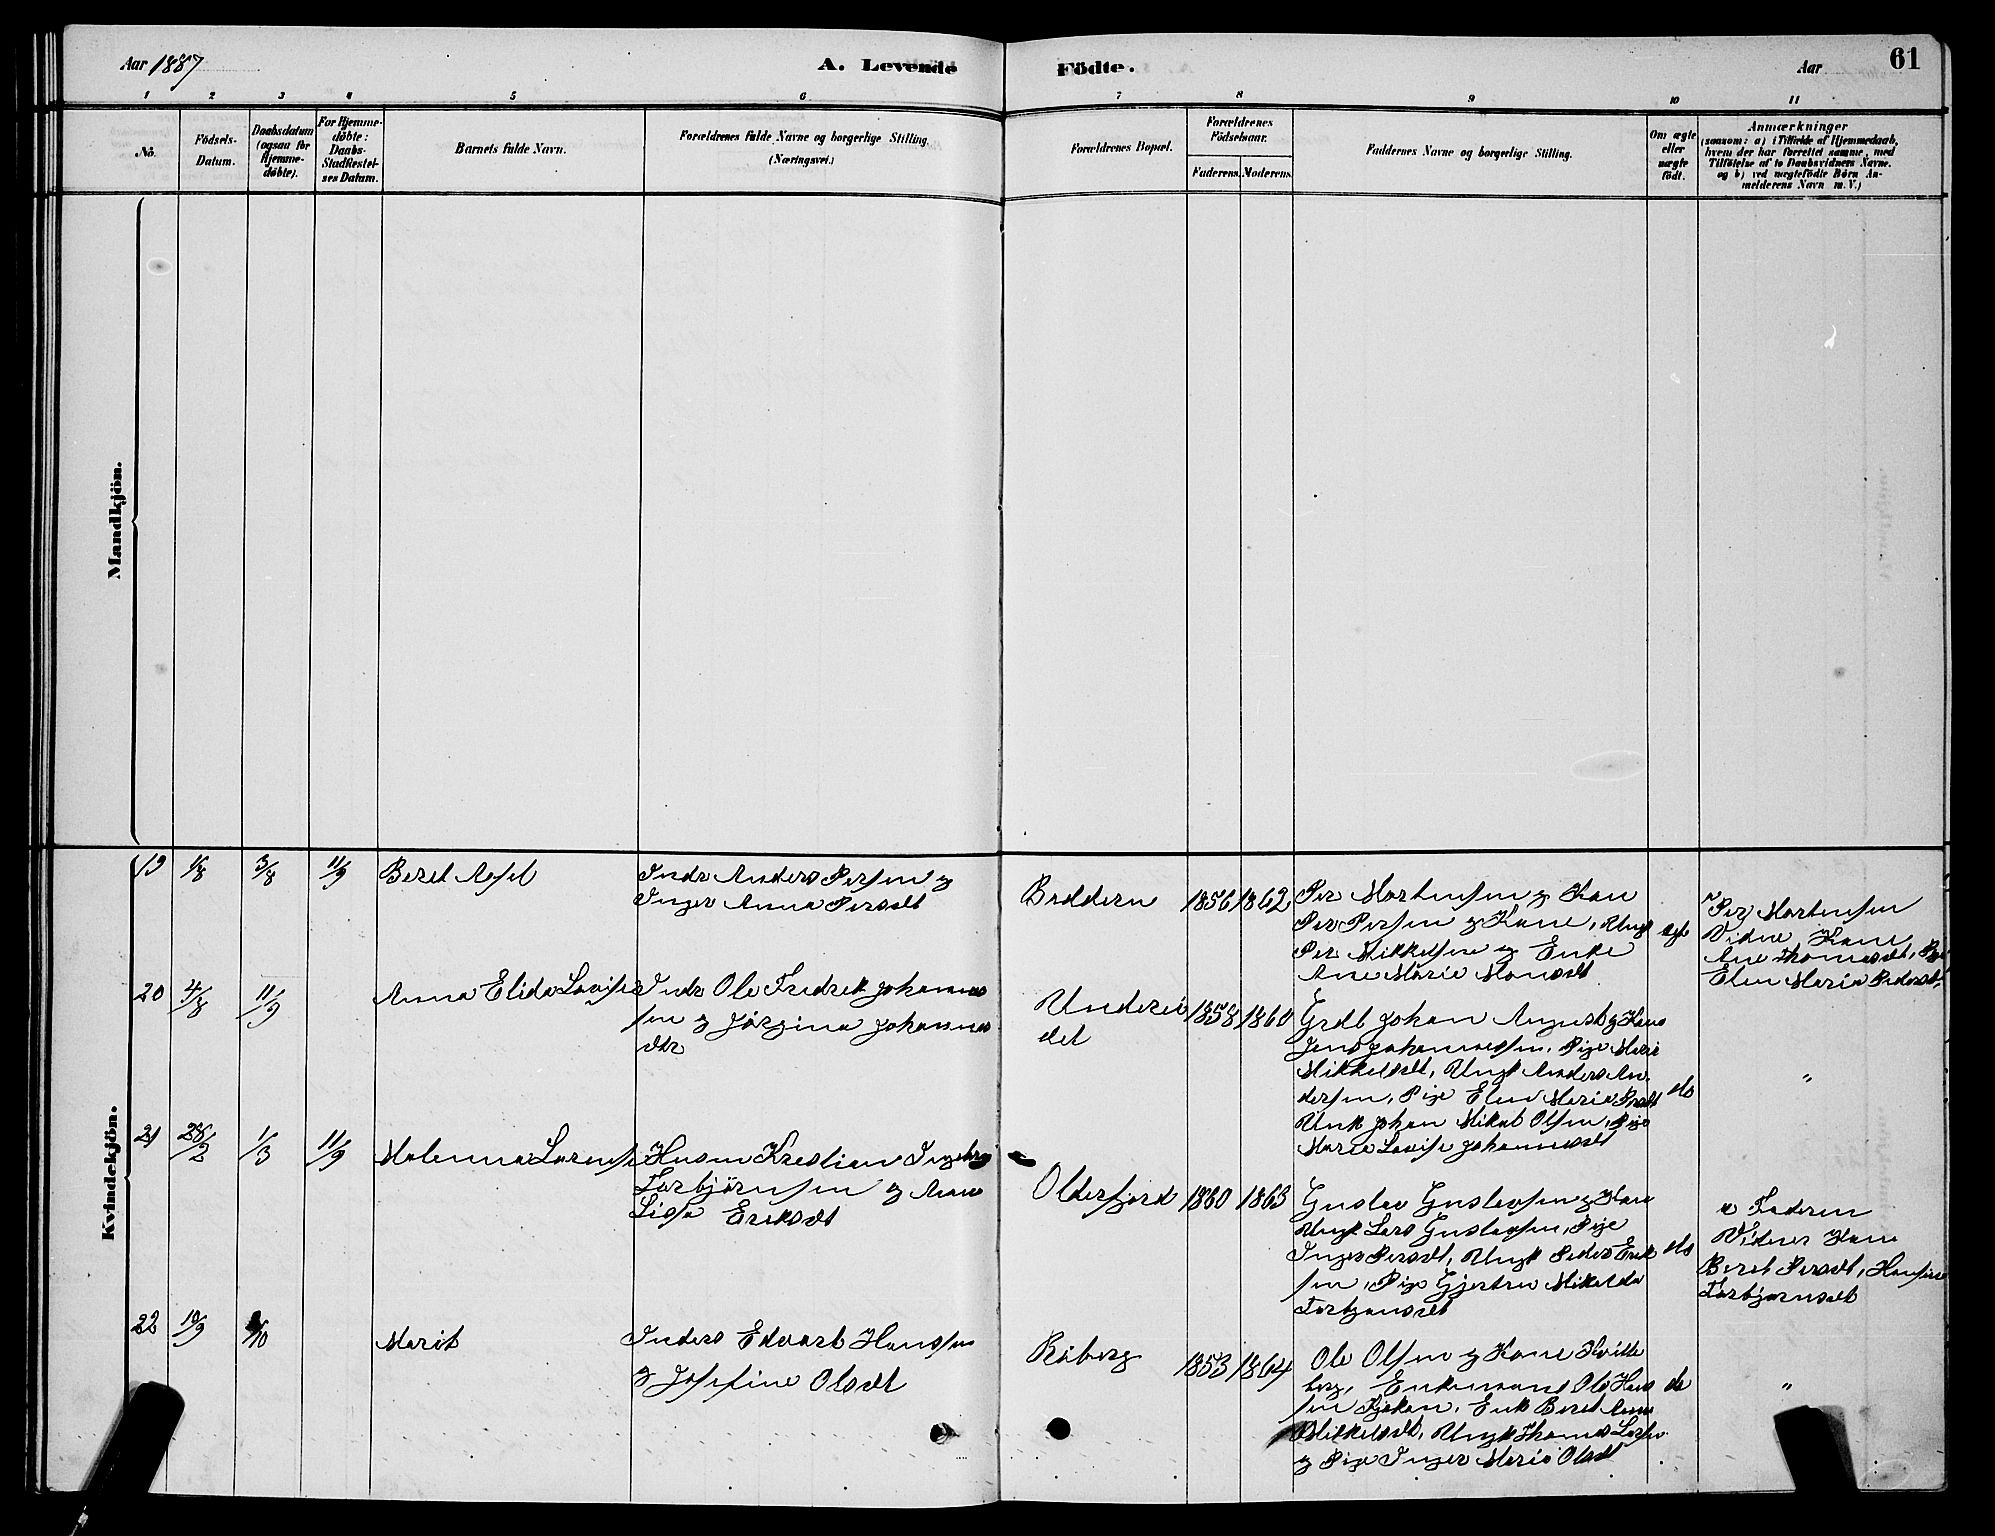 Aar 1887
A. Levende
Födte.
Aar
61
1 2 3 4 5 6 7 8 9 10 11
No.
Födsels-
Datum.
Daabsdatum
(ogsaa for
Hjemme-
döbte).
For Hjemme-
döbte:
Daabs-
Stadfæstel-
ses Datum.
Barnets fulde Navn.
Forældrenes fulde Navne og borgerlige Stilling.
(Næringsvei.)
Forældrenes Bopæl.
Forældrenes
Födselsaar.
Faderens. Moderens.
Faddernes Navne og borgerlige Stilling.
Om ægte
eller
uægte
födt.
Anmærkninger
(saasom: a) i Tilfælde af Hjemmedaab,
hvem der har forrettet samme, med
Tilföielse af to Daabsvidners Navne.
og b) ved uægtefödte Börn An-
melderens Navn m. V.)
Mandkjön.
Kvindekjön.
19 1/8 3/8 11/9 Beret Aksel
Indr Anders Persen g
Inger Anna Persdt
Beddern 1856 1862
Per Mortensen g Kon
Per Persen g Kone, Ungk
Per Mikkelsen g Enke
Ane Marie Monsdt
ægte
Per Mortensen
Vidne Kone
Ane Thomasdt,
Elen Maria Pedersdt
20 4/8 11/9 Anna Elida Lovise
Indr Ole Fredrek Johannes
sen g Jørgina Johannes
dtr
Underei
det
1858 1860
Grdb Johan August g Kone
Jens Johannessen, Pige Marie
Mikkelsdt, Ungk Anders An-
dersen, Pige Elen Maria Prsdt
Unk Johan Mikal Olsen, Pige
Maria Lovise Johannesdt
do
"
21 28/2 1/3 11/9 Malenna Larense
Husm Krestian Ingebrg
Torbjörnsen g Anne
Lisa Eriksdt
Olderfjord 1860 1863
Gustav Gustavsen g Kone
Ungk Lars Gustavsen, Pige
Inger Persdt, Ungk Peder Erik
sen, Pige Gjertru Mikalda
Torbjønsdt
do
a Faderen
Vidner Kone
Beret Persdt, Hansine
Torbjørnsdt
22 10/9 /10 Marit
Inders Edvart Hanssen
g Josefine Olsdt
Råberg 1853 1864
Ole Olsen g Kone Kvitte
berg, Enkemand Ole Hans
sen Kjøkan, Enk Beret Anna
Mikkelsdt, Ungk Thomas Larsen
g Pige Inger Marie Olsdt
do
"